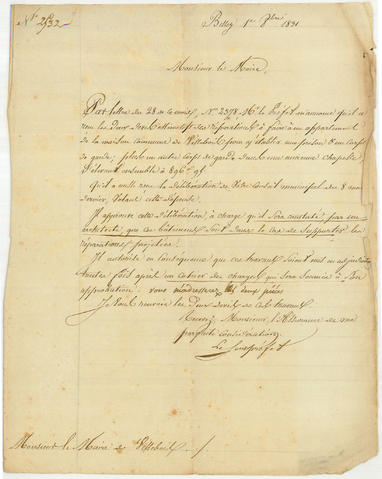 N.° 2532
Belley 1er 7bre 1831
Monsieur le Maire,
Par lettre du 28 de ce mois, N.° 2378 Mr. le Préfet m'annonce qu'il a
vu les deux devis estimatifs des réparations à faire à un appartement
de la maison commune de pour y établir une prison & un Corps
de garde, plus un autre Corps de garde dans une ancienne chapelle
s'élevant ensemble à 896f 95c
Qu'il a aussi vu la délibération de votre Conseil municipal du 8 mai
dernier, votant cette dépense
Il approuve cette délibération, à charge qu'il sera constaté, par un
architecte, que ces bâtiments sont dans le cas de supporter les
réparations projetées.
Il autorise en conséquence que ces travaux soient mis en adjudication
toutes fois après un cahier des charges qui sera soumis à son
approbation. vous m'adresserez les deux pièces
Je vous renvoie les deux devis de ces travaux
Recevez, Monsieur, l'assurance de ma
parfaite considération
Le Sous préfet
Monsieur le Maire de